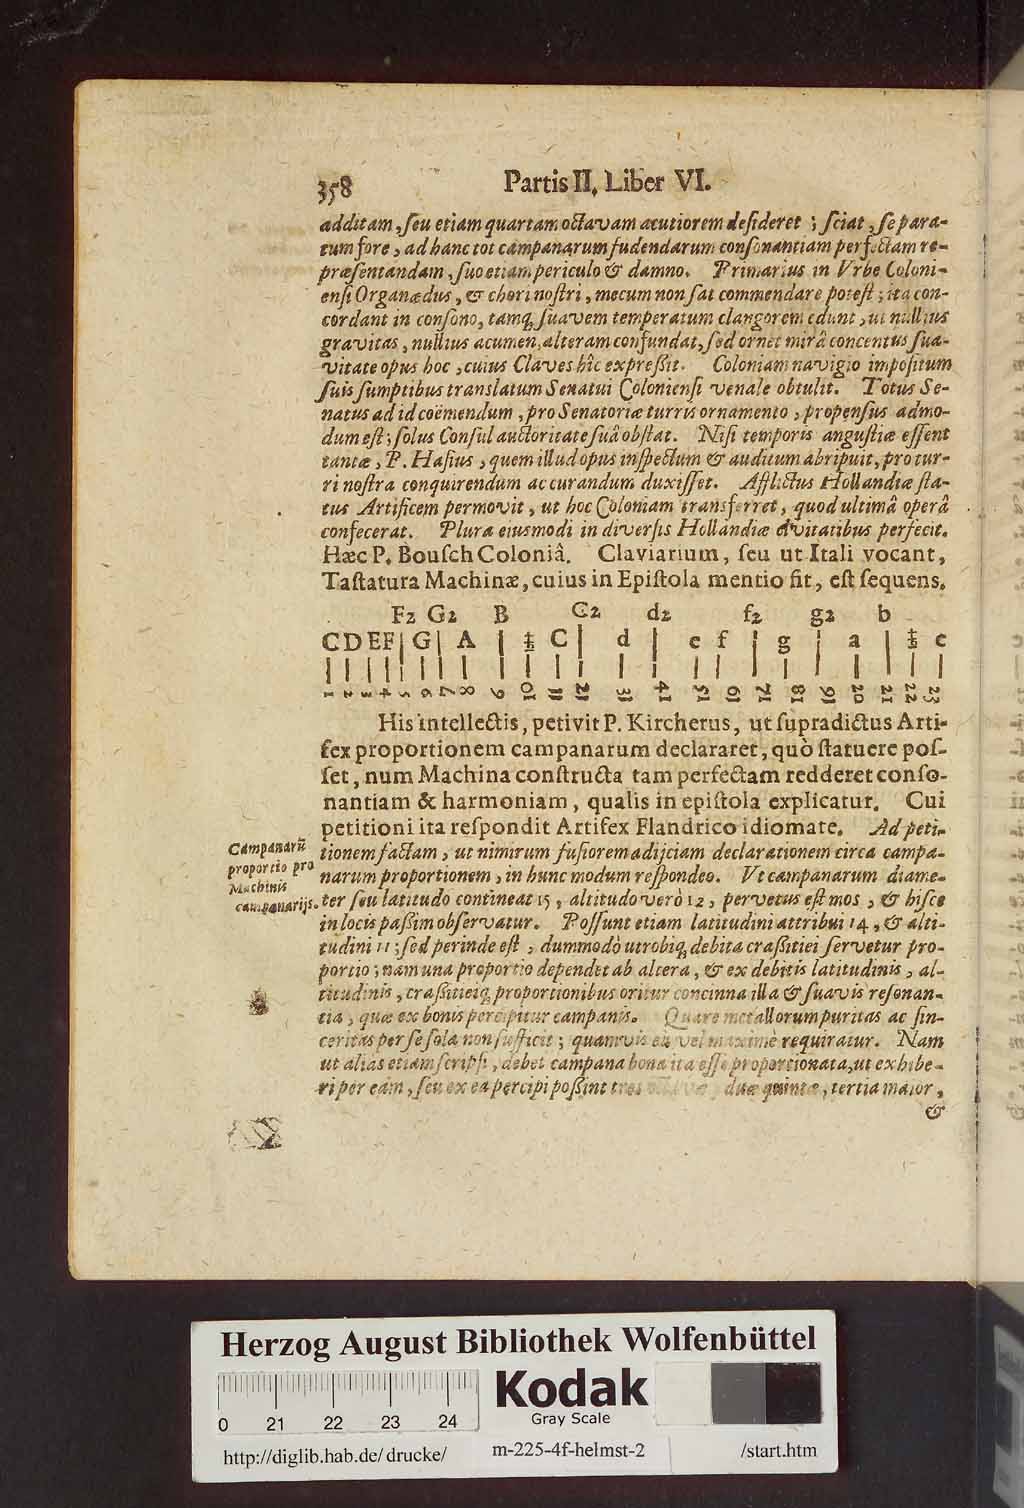 358 Partis II. Liber VI.
additam, ſeu etiam quartam octavam acutiorem deſideret ; ſciat, ſe para-
tum fore, ad hanc tot campanarum fudendarum conſonantiam perfectam re-
præſentandam, ſuo etiam periculo & damno. Primarius in Vrbe Coloni-
enſi Organædus, & chori noſtri, mecum non ſat commendare poteſt ; ita con-
cordant in conſono, tamq; ſuavem temperatum clangorem edunt, ut nullius
gravitas, nullius acumen, alteram confundat, ſed ornet mirâ concentus ſua-
vitate opus hoc, cuius Claves hîc expreßit. Coloniam navigio impoſitum
ſuis ſumptibus translatum Senatui Colonienſi venale obtulit. Totus Se-
natus ad id coëmendum, pro Senatoriæ turris ornamento, propenſus admo-
dum eſt ; ſolus Conſul auctoritate ſuâ obſtat. Niſi temporis anguſtiæ eſſent
tantæ, P. Haſius, quem illud opus inſpectum & auditum abripuit, pro tur-
ri noſtra conquirendum ac curandum duxiſſet. Afflictus Hollandiæ ſta-
tus Artificem permovit, ut hoc Coloniam transferret, quod ultimâ operâ
confecerat. Plura eiusmodi in diverſis Hollandiæ civitatibus perfecit.
Hæc P. Bouſch Coloniâ. Claviarium, ſeu ut Itali vocant,
Taſtatura Machinæ, cuius in Epiſtola mentio fit, eſt ſequens.
F2 G2 B C2 d2 f2 g2 b
C D E F G A ♮ C d e f g a ♮ c
1 2 3 4 5 6 7 8 9 10 11 12 13 14 15 16 17 18 19 20 21 22 23
His intellectis, petivit P. Kircherus, ut ſupradictus Arti-
fex proportionem campanarum declararet, quò ſtatuere poſ-
ſet, num Machina conſtructa tam perfectam redderet conſo-
nantiam & harmoniam, qualis in epiſtola explicatur. Cui
petitioni ita reſpondit Artifex Flandrico idiomate. Ad peti-
Campanarũ
proportio pro
Machinis
campanarijs.
tionem factam, ut nimirum fuſiorem adijciam declarationem circa campa-
narum proportionem, in hunc modum reſpondeo. Vt campanarum diame-
ter ſeu latitudo contineat 15, altitudo verò 12, pervetus eſt mos, & hiſce
in locis paßim obſervatur. Poſſunt etiam latitudini attribui 14, & alti-
tudini 11 ; ſed perinde eſt, dummodò utrobiq; debita craßitiei ſervetur pro-
portio ; nam una proportio dependet ab altera, & ex debitis latitudinis, al-
titudinis, craßitieiq; proportionibus oritur concinna illa & ſuavis reſonan-
tia, quæ ex bonis percipitur campanis. Quare metallorum puritas ac ſin-
ceritas per ſe ſola non ſufficit ; quamvis ea vel maximè requiratur. Nam
ut aliàs etiam ſcripſi, debet campana bona ita eſſe proportionata, ut exhibe-
ri per eam, ſeu ex ea percipi poßint tres octavæ, duæ quintæ, tertia maior,
&
Herzog August Bibliothek Wolfenbüttel
0 21 22 23 24
Kodak
Gray Scale
http://diglib.hab.de/drucke/ m-225-4f-helmst-2 /start.htm